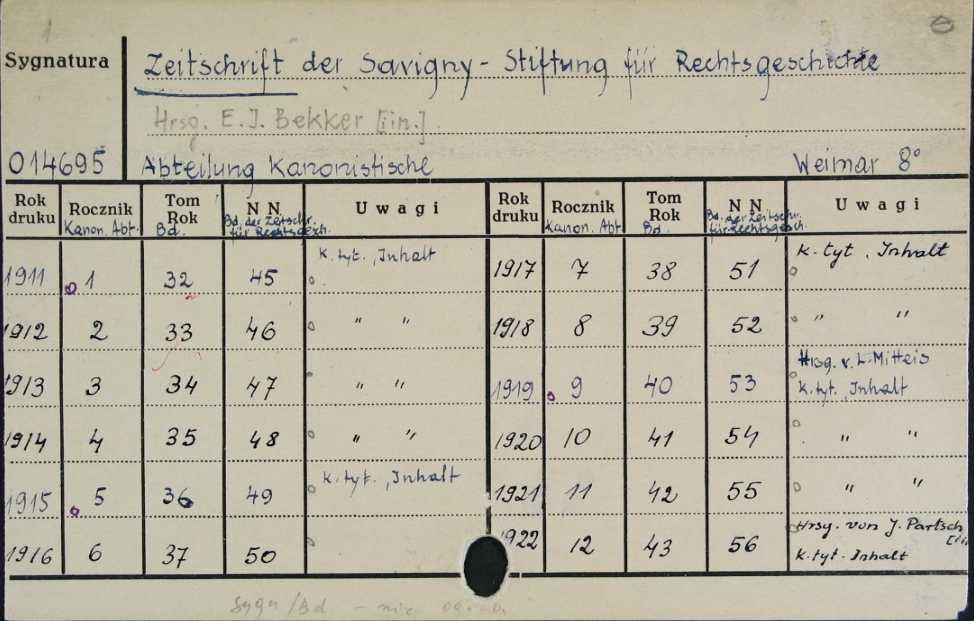 Sygnatura
Zeitschrift der Savigny-Stiftung für Rechtsgeschichte
Hrsg. E.I. Bekker [i in.]
014695 Abteilung Kanonistische Weimar 8°
Rok druku Rocznik Kanon. Abt. Tom Rok Bd. N N Bd. der Zeitschr. für Rechtsgesch. Uwagi Rok druku Rocznik Kanon. Abt. Tom Rok Bd. N N Bd. der Zeitschr. für Rechtsgesch. Uwagi
1911 1 32 45 k. tyt., Inhalt 1917 7 38 51 k. tyt, Inhalt
1912 2 33 46 " " 1918 8 39 52 " "
1913 3 34 47 " " 1919 9 40 53 Hrsg. v. L. Mitteis k. tyt., Inhalt
1914 4 35 48 " " 1920 10 41 54 " "
1915 5 36 49 k. tyt., Inhalt 1921 11 42 55 " "
1916 6 37 50 1922 12 43 56 Hrsg. von J. Partsch k. tyt. Inhalt
Sygn/Bd - nie